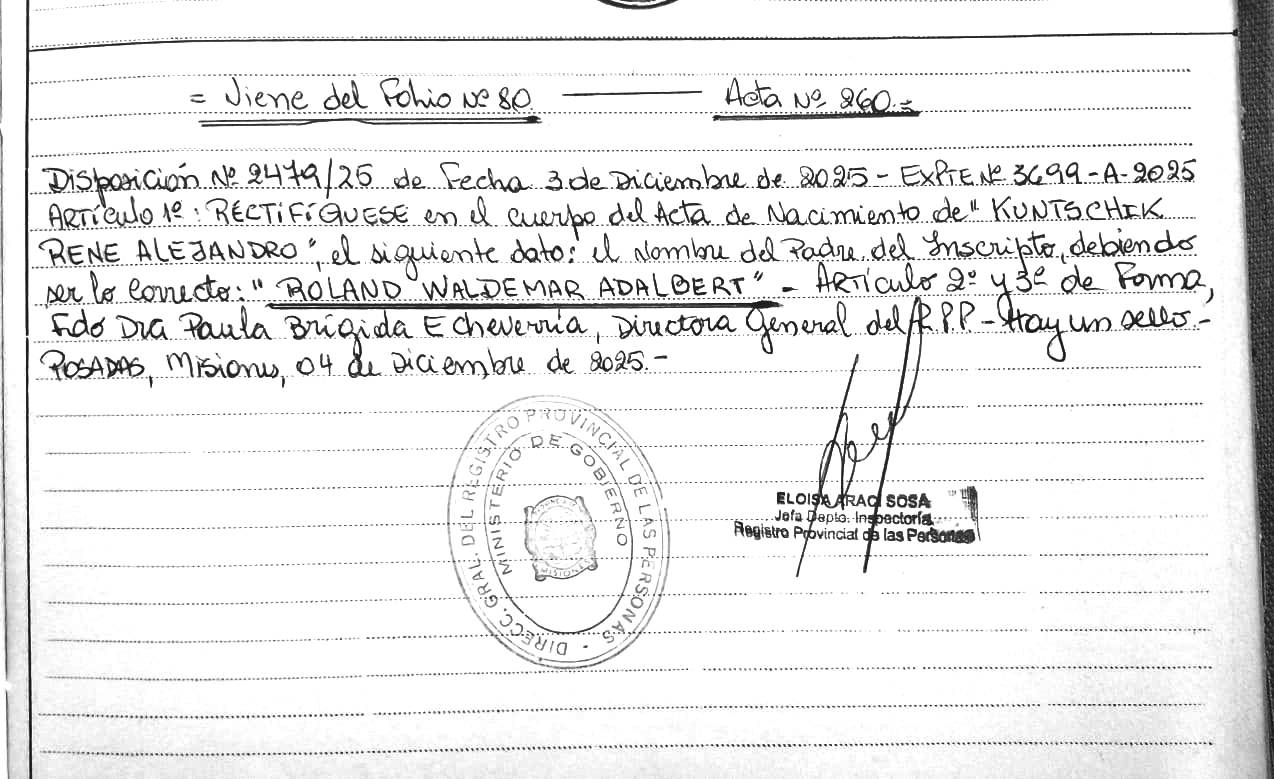 = Viene del Folio Nº 80. ——— Acta Nº 260.=
Disposición Nº 2479/25 de Fecha 3 de Diciembre de 2025 - EXPTE Nº 3699-A-2025
ARTÍCULO 1º: RECTIFÍQUESE en el cuerpo del Acta de Nacimiento de "KUNTSCHIK
RENE ALEJANDRO", el siguiente dato: el Nombre del Padre del Inscripto, debiendo
ser lo Correcto: "ROLAND WALDEMAR ADALBERT" - ARTÍCULO 2º y 3º de Forma,
Fdo Dra Paula Brígida Echeverría, Directora General del R.P.P. - Hay un sello.-
POSADAS, Misiones, 04 de Diciembre de 2025.-
DIRECC. GRAL. DEL REGISTRO PROVINCIAL DE LAS PERSONAS
MINISTERIO DE GOBIERNO
MISIONES
ELOISA ARACI SOSA
Jefa Depto. Inspectoría
Registro Provincial de las Personas